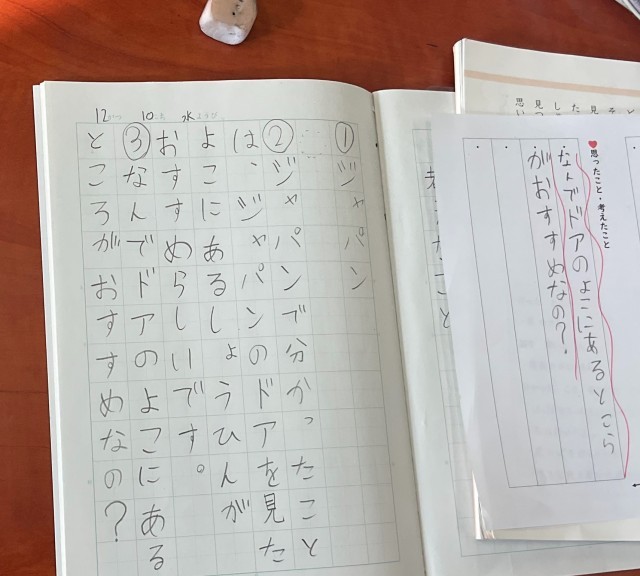 12がつ 10にち 水ようび
①ジャパン
②ジャパンで分かったこと
は、ジャパンのドアを見た
よこにあるしょうひんが
おすすめらしいです。
③なんでドアのよこにある
ところがおすすめなの？
思ったこと・考えたこと
なんでドアのよこにあるとこら
がおすすめなの？